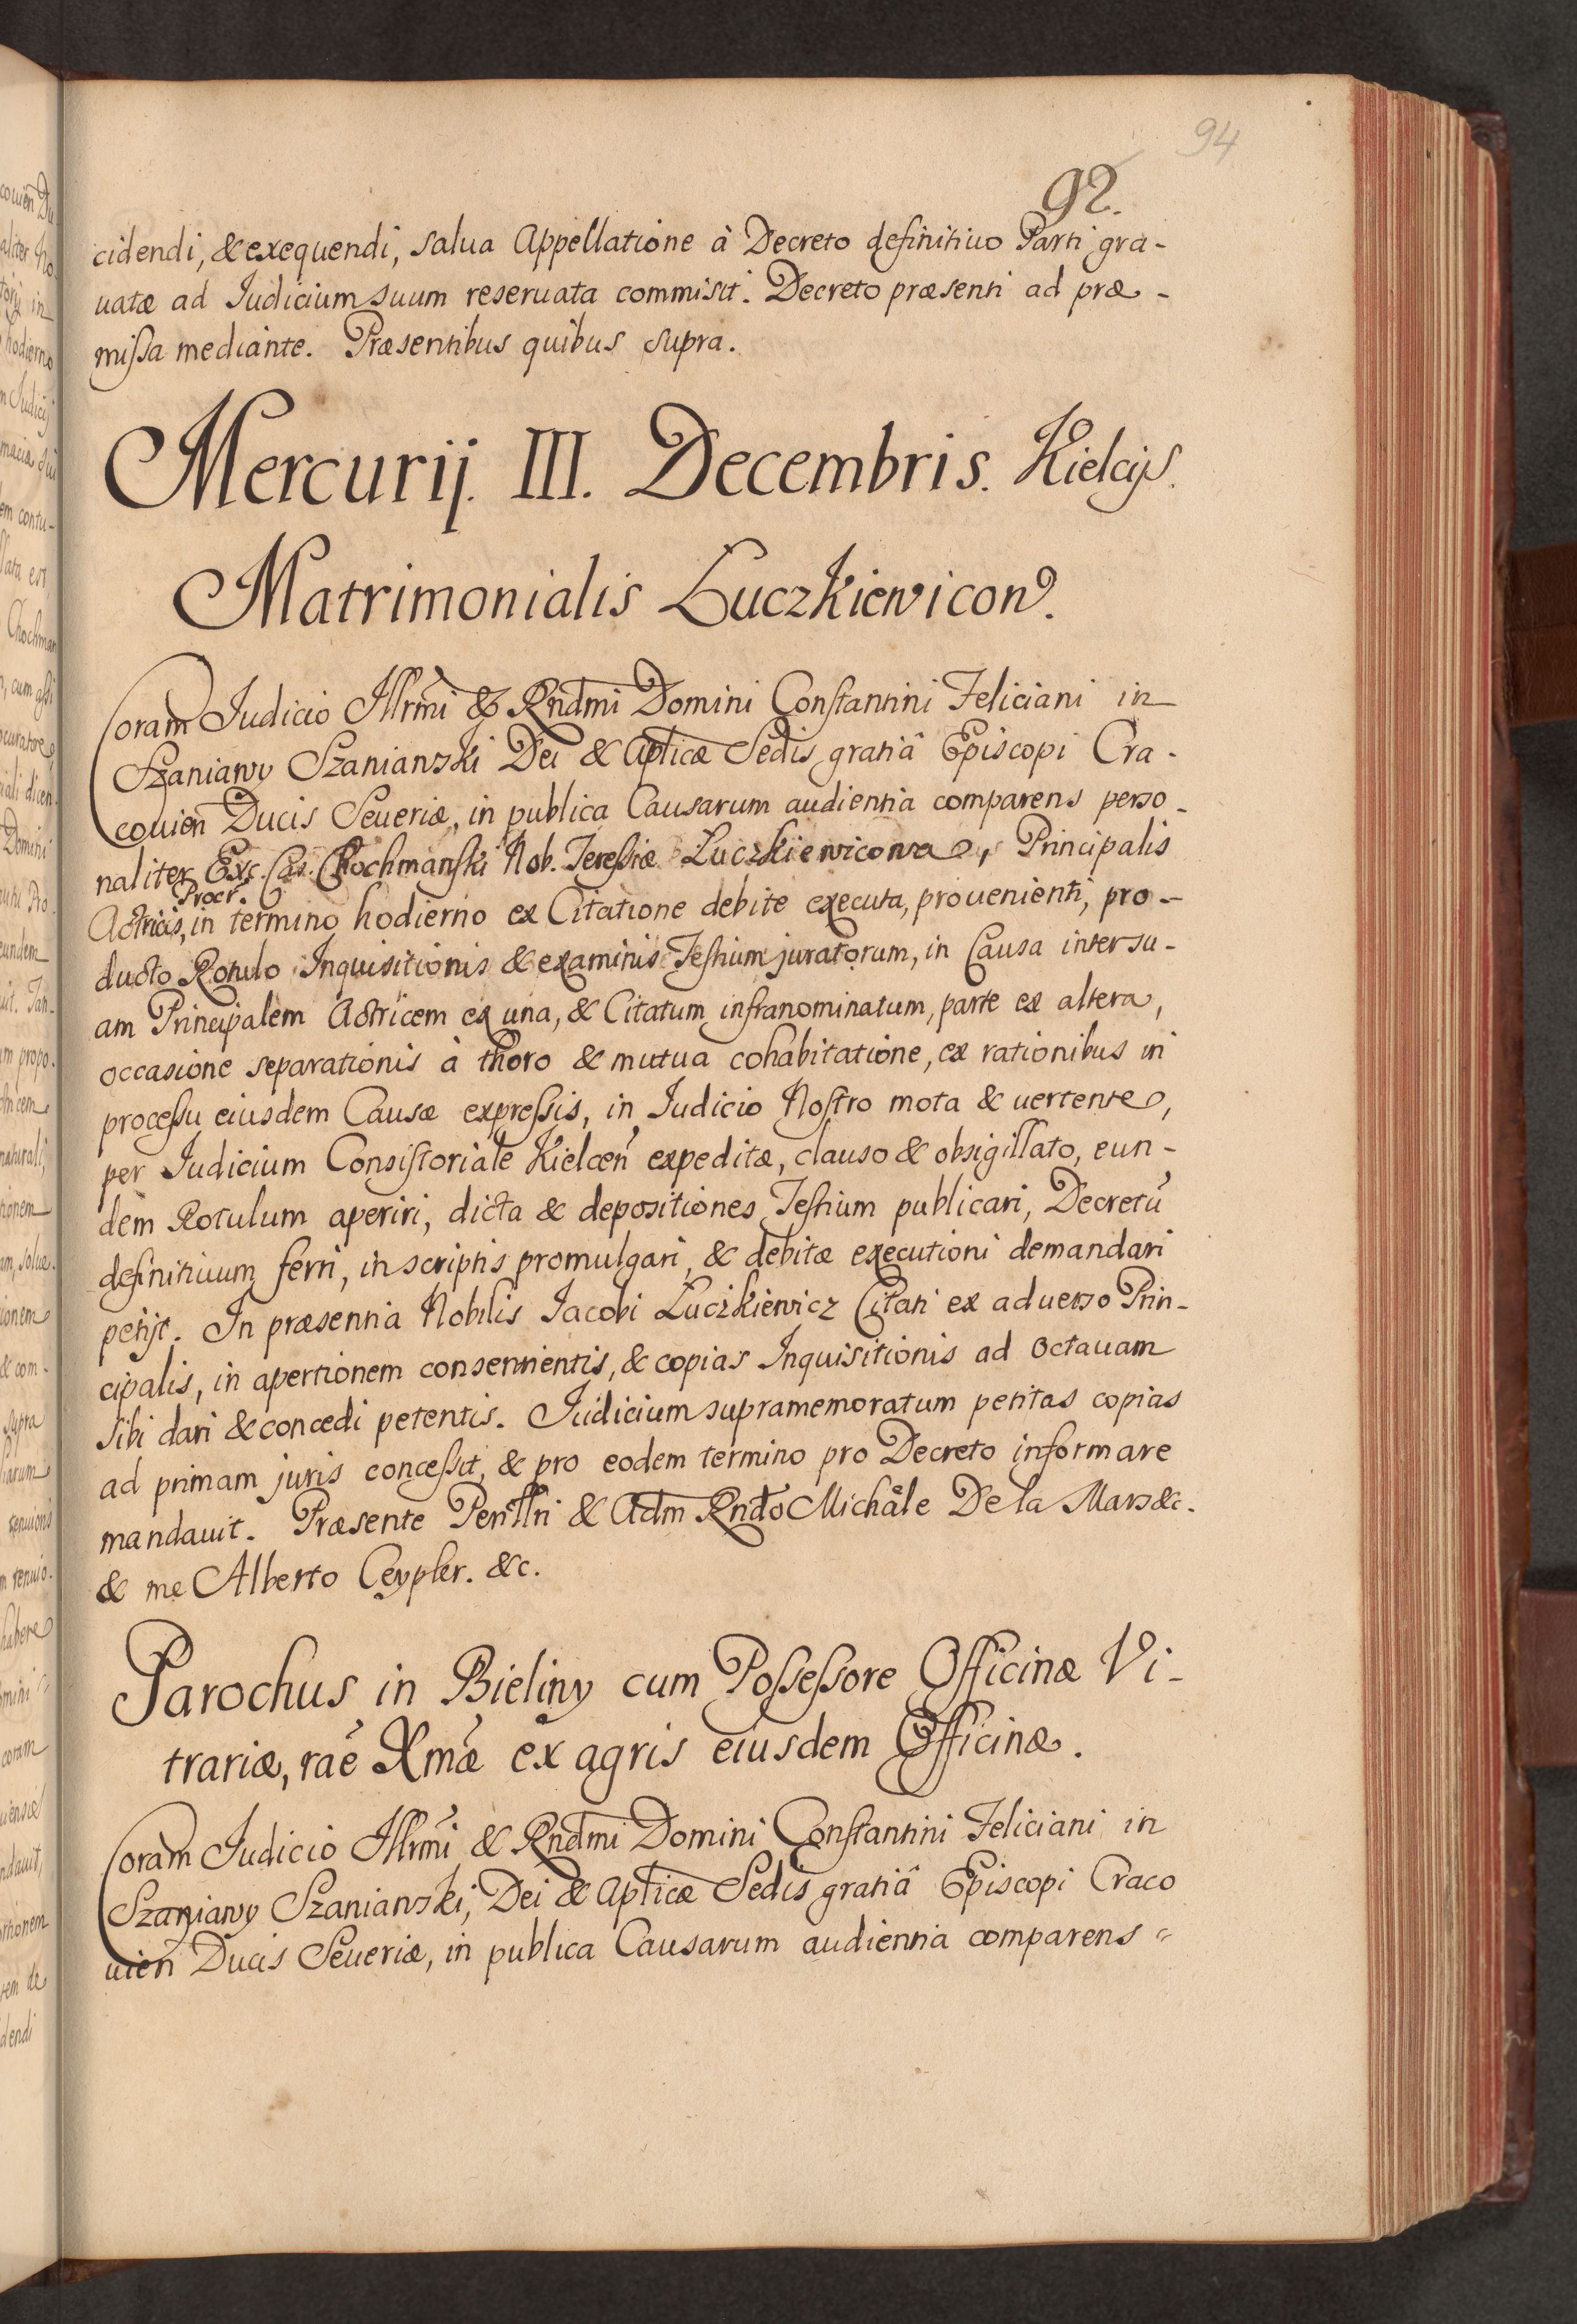 94
92.
cidendi, & exequendi, salua Appellatione à Decreto definitiuo Parti gra-
uatæ ad Iudicium suum reseruata commisit. Decreto præsenti ad præ-
missa mediante. Præsentibus quibus supra.
Mercurij. III. Decembris. Kielcijs.
Matrimonialis Łuczkiewicon̄.
Coram Iudicio Illrm̄i & Rndm̄i Domini Constantini Feliciani in
Szaniawy Szaniawski Dei & Aplicæ Sedis gratiâ Episcopi Cra-
couien̄ Ducis Seueriæ, in publica Causarum audientia comparens perso-
naliter Exc. Cas. Chochmański Nob. Teressiæ Łuczkiewicowa, Principalis
Procr.
Actricis, in termino hodierno ex Citatione debite executa, prouenienti, pro-
ducto Rotulo Inquisitionis & examinis Testium juratorum, in Causa inter su-
am Principalem Actricem ex una, & Citatum infranominatum, parte ex altera,
occasione separationis à thoro & mutua cohabitatione, ex rationibus in
processu eiusdem Causæ expressis, in Iudicio Nostro mota & uertente,
per Iudicium Consistoriale Kielcen̄ expeditæ, clauso & obsigillato, eun-
dem Rotulum aperiri, dicta & depositiones Testium publicari, Decretū
definitiuum ferri, in scriptis promulgari, & debitæ executioni demandari
petijt. In præsentia Nobilis Iacobi Łuczkiewicz Citati ex aduerso Prin-
cipalis, in apertionem consentientis, & copias Inquisitionis ad octauam
sibi dari & concedi petentis. Iudicium supramemoratum petitas copias
ad primam juris concessit, & pro eodem termino pro Decreto informare
mandauit. Præsente Perillri & Adm Rndo Michäle De la Mars &c.
& me Alberto Ceypler. &c.
Parochus in Bieliny cum Possessore Officinæ Vi-
trariæ, raē Xmǣ ex agris eiusdem Officinæ.
Coram Iudicio Illrm̄i & Rndm̄i Domini Constantini Feliciani in
Szaniawy Szaniawski, Dei & Aplicæ Sedis gratiâ Episcopi Craco
uien̄ Ducis Seueriæ, in publica Causarum audientia comparens